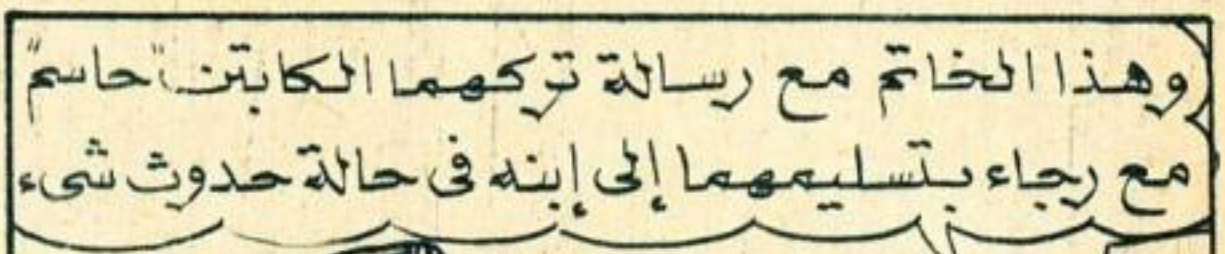 وهذا الخاتم مع رسالة تركهما الكابتن "حاسم"
مع رجاء بتسليمهما إلى إبنه فى حالة حدوث شىء